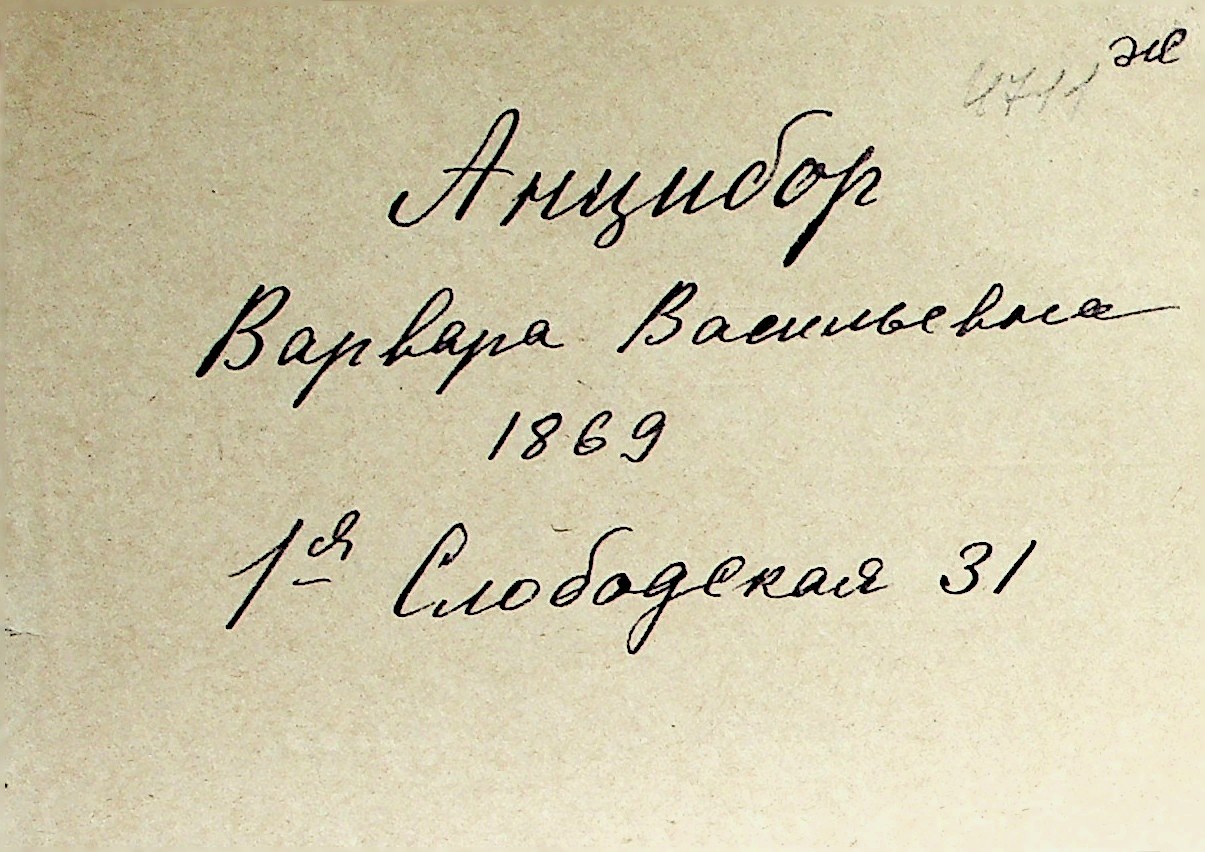 ж
4711
Анцибор
Варвара Васильевна
1869
1я Слободская 31